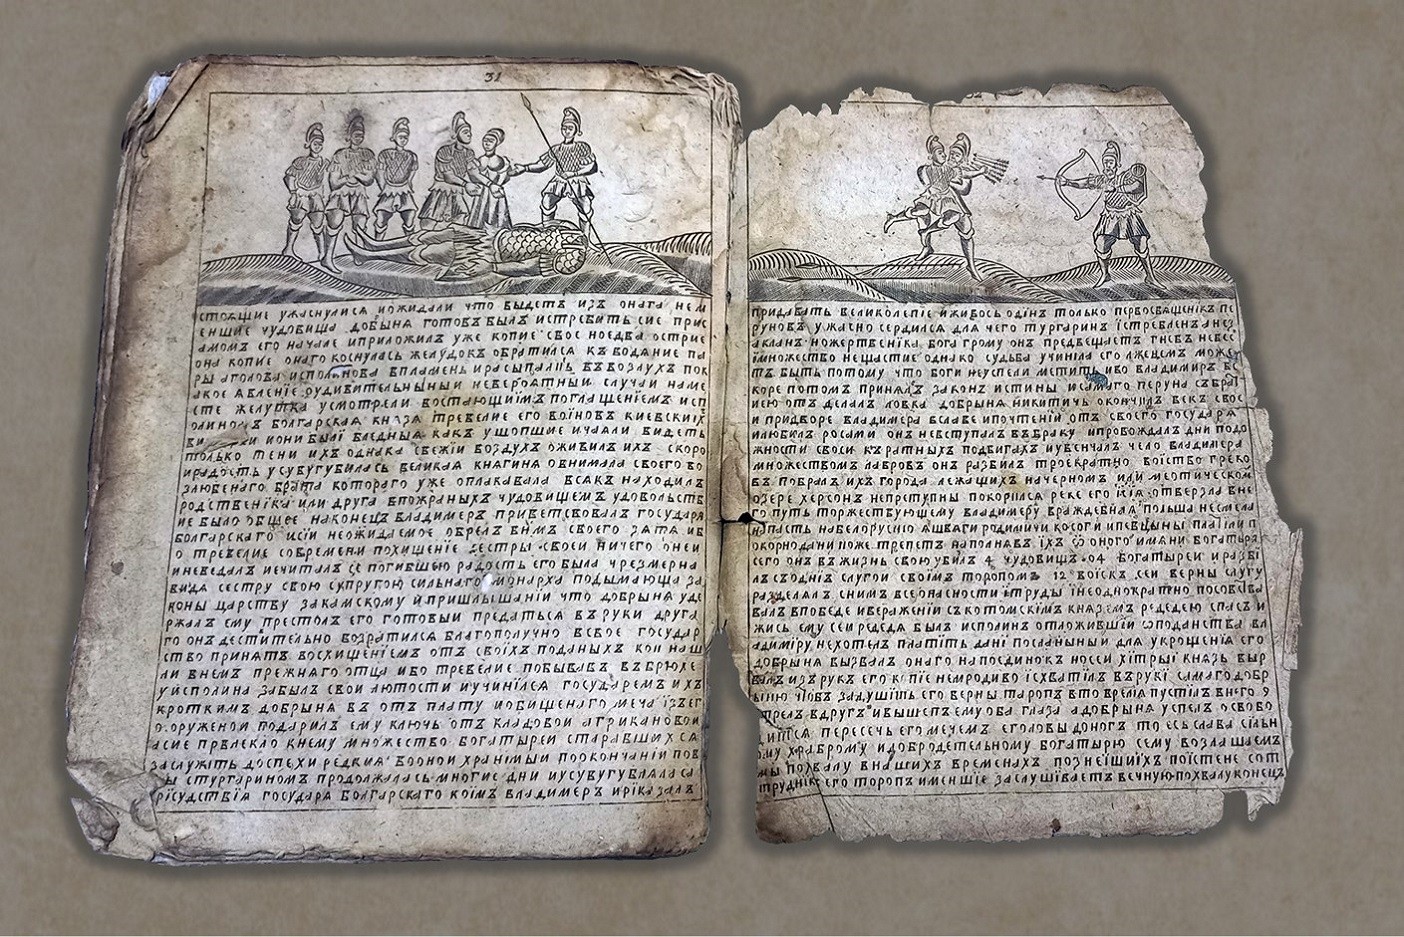 31
стоящие ужаснулися иожидали что выдетъ изъ онага нем
еншие чудовища добыня готовъ былъ истребить сие прис
амомъ его начале иприложилъ уже копие свое ноедва острие
она копие онаго коснулась желудокъ обратился къ водяние па
ры аголова исполінова впламень ірасыпаліь въвоздухъ пок
акое явление оудивительныныи невероятныи случаи наме
сте желутка усмотрели востающимъ поглащениемъ исп
олиномъ болгарская князя тревелие его воіновъ киевскиї
иони былі бледныя какъ ущопшие ичаяли видеть
только тени ихъ однака свежіи воздухъ оживилъ ихъ скоро
ирадость усувугубилась великая княгиня овнимала своего во
злюбенаго брата которага уже оплакавала всакъ находилъ
родственіка или друга впожраныхъ чудовищемъ удовольств
ие было общее наконецъ владимеръ приветсвовалъ государя
болгарскаго исіи неожидаемое обрелъ внмъ своего зятя ив
о тревелие современи похищение сестры своеи ничего онеи
иневедалъ исчиталъ се погибшею радость его была чрезмерна
видя сестру свою супругою сильнаго монарха подымающа за
коны царству закамскому ипришлышаніи что добрыня уде
ржалъ ему престолъ его готовыи предаться въруки друга
го онъ деститтельно возратился благополучно всвое государ
ство принятъ восхищениемъ отъ своіхъ поданыхъ кои наш
ли внемъ прежняго отца ибо тревелие побывавъ въбрюхе
уисполина забылъ свои лютости иучинілся государемъ ихъ
кроткимъ добрыня въ отъ плату иобищенаго меча їзъег
о оруженои подарилъ ему ключь отъ кладовои атрикановои
асие првлекло кнему множество богатыреи старавшихся
заслужить доспехи редкия воонои хранімыи поокончаніи пов
ы стургариномъ продолжалась многие дни иусувугублялася
рісудствїя государя болгарскаго коімъ владимеръ ирїказалъ
придавать великолепие йживось одінъ только первосвященікъ пе
руновъ ужасно сердился для чего тургарінъ їстребленъ
акланъ ножертвеніка бога грому онъ предвещаетъ гневъ небес
їмножество нещастие однако судьба учиніла его лжецемъ може
тъ быть потому что боги неуспели метить иво владимиръ вс
коре потомъ принялъ законъ истины исамаго перуна събрат
иею отъ делалъ ловка добрыня никитичь окончілъ векъ свос
и придворе владимера вславе ипочтеніи отъ своего государя
илюбілъ росами онъ невступалъ въбраку ипробождалъ дни подо
жности своси къратныхъ подвигахъ иувенчалъ чело владимера
множествомъ лавровъ онъ разбилъ троекратно воїство греко
въ побралъ ихъ города лежащихъ начерномъ или меотическом
озере херсонъ непреступны покорился реке его їсїя отверзла вне
го путь торжествующему владимеру враждебная польша несмела
напасть набелорусию яшвяги родимичи косоги ипевцыны платіли п
окорнодани поже трепетъ наполнявъ їхъ ѿ оного імяни богатыря
сего онъ въжизнь свою убилъ 4 чудовищъ 04 богатыреи иразбі
лъ съоднїъ слугои своімъ торопомъ 12 воіскъ сеи верны слугу
разделялъ снимъ всеопасности ітруды їнеоднократно посовства
валъ впобеде ивераженіи съкотомскімъ княземъ редедею спасъ и
жись ему сеи редедя былъ исполинъ отложившіи ѿподанства вл
адиміру нехотелъ платїть дані посланыныи для укрощенїя его
добрыня вызвалъ онаго напоединокъ носеи хїтрыї князь выр
валъ изърукъ его копие немродиво їсхватілъ върукі самаго добр
ыню чтобъ задушіть его верны таропъ вто время пустілъ внего 9
трелъ вдругъ ивышепъ ему оба глаза адобрыня успелъ освобо
ится пересечь его мечемъ еголовы доногъ то есь слава сільн
ому храброму идобродетельному богатырю сему возлашаемъ
мы похвалу внашихъ временахъ познеїшиїхъ поїстене сот
труднікъ его торопъ именшие заслушіваетъ вечную похвалу конецъ